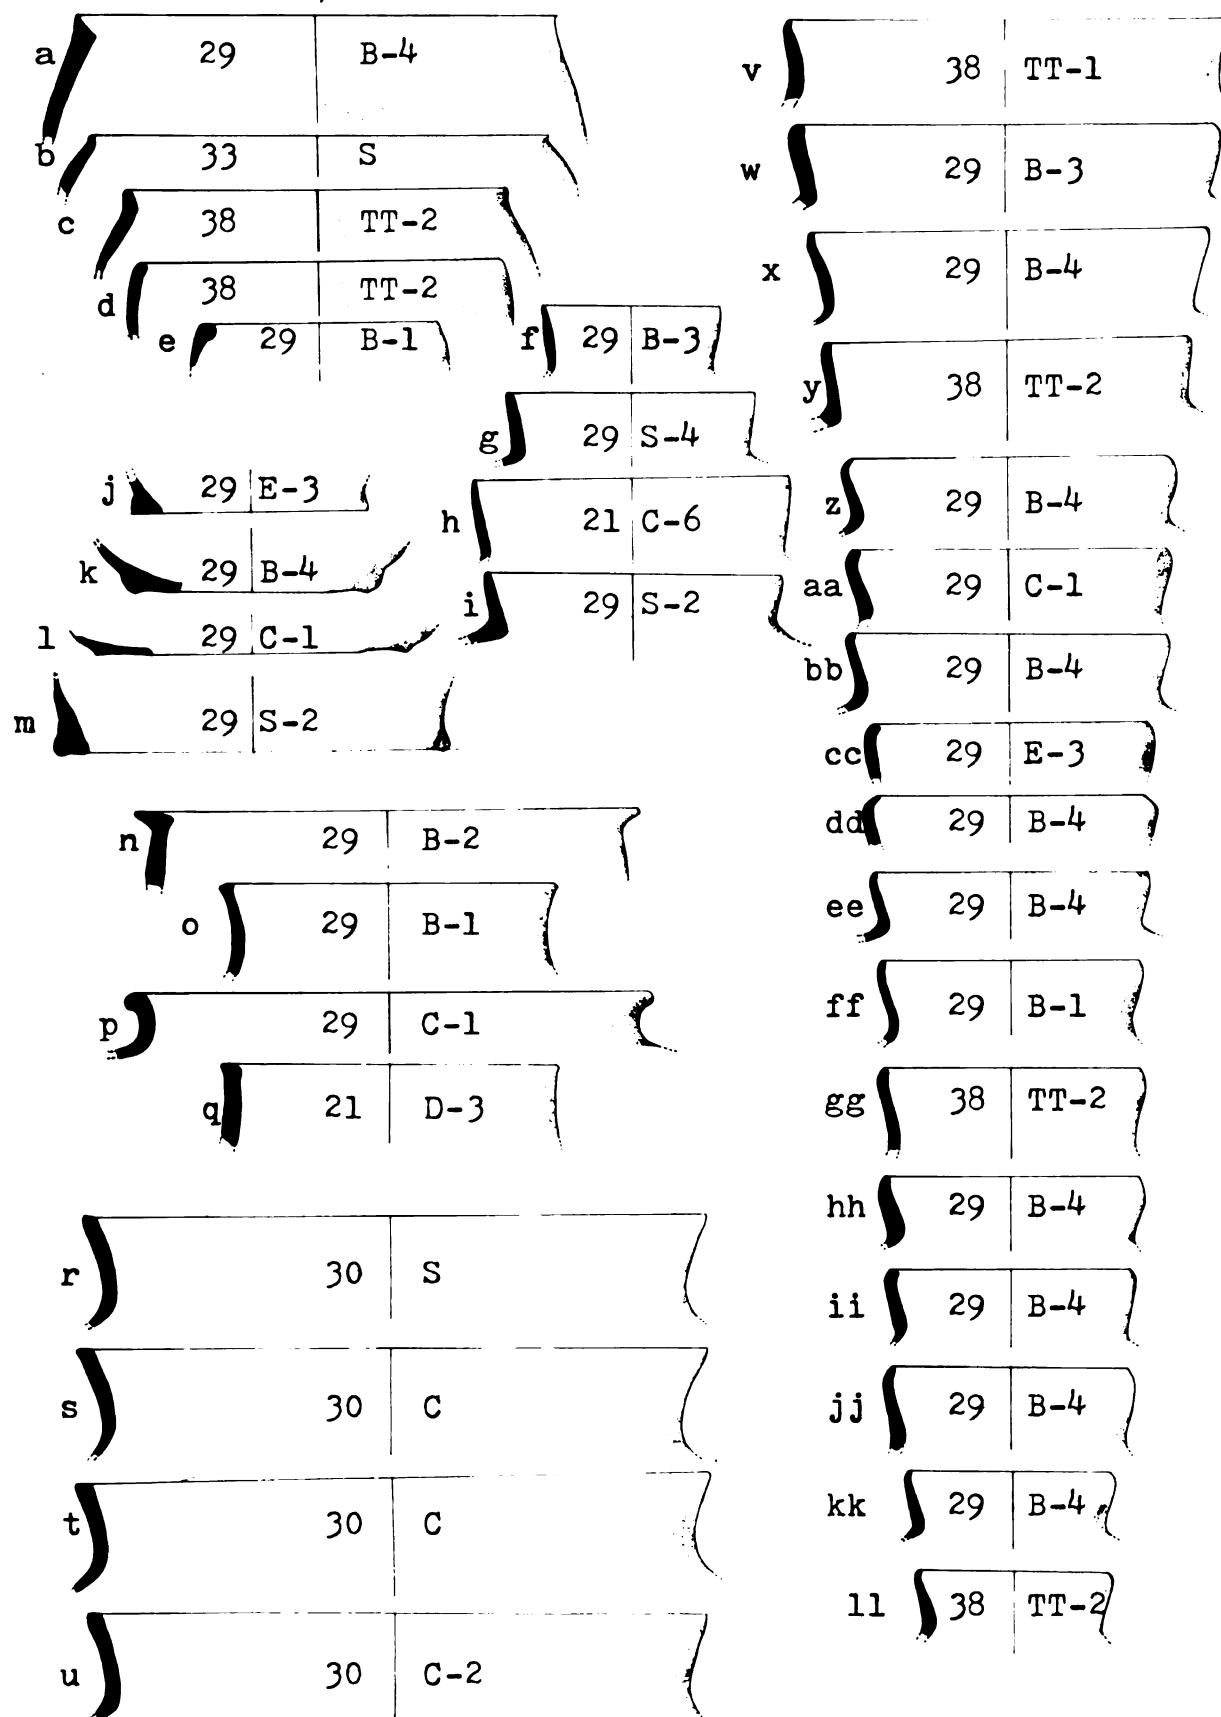 a 29 B-4
b 33 S
c 38 TT-2
d 38 TT-2
e 29 B-1
f 29 B-3
g 29 S-4
h 21 C-6
i 29 S-2
j 29 E-3
k 29 B-4
l 29 C-1
m 29 S-2
n 29 B-2
o 29 B-1
p 29 C-1
q 21 D-3
r 30 S
s 30 C
t 30 C
u 30 C-2
v 38 TT-1
w 29 B-3
x 29 B-4
y 38 TT-2
z 29 B-4
aa 29 C-1
bb 29 B-4
cc 29 E-3
dd 29 B-4
ee 29 B-4
ff 29 B-1
gg 38 TT-2
hh 29 B-4
ii 29 B-4
jj 29 B-4
kk 29 B-4
ll 38 TT-2